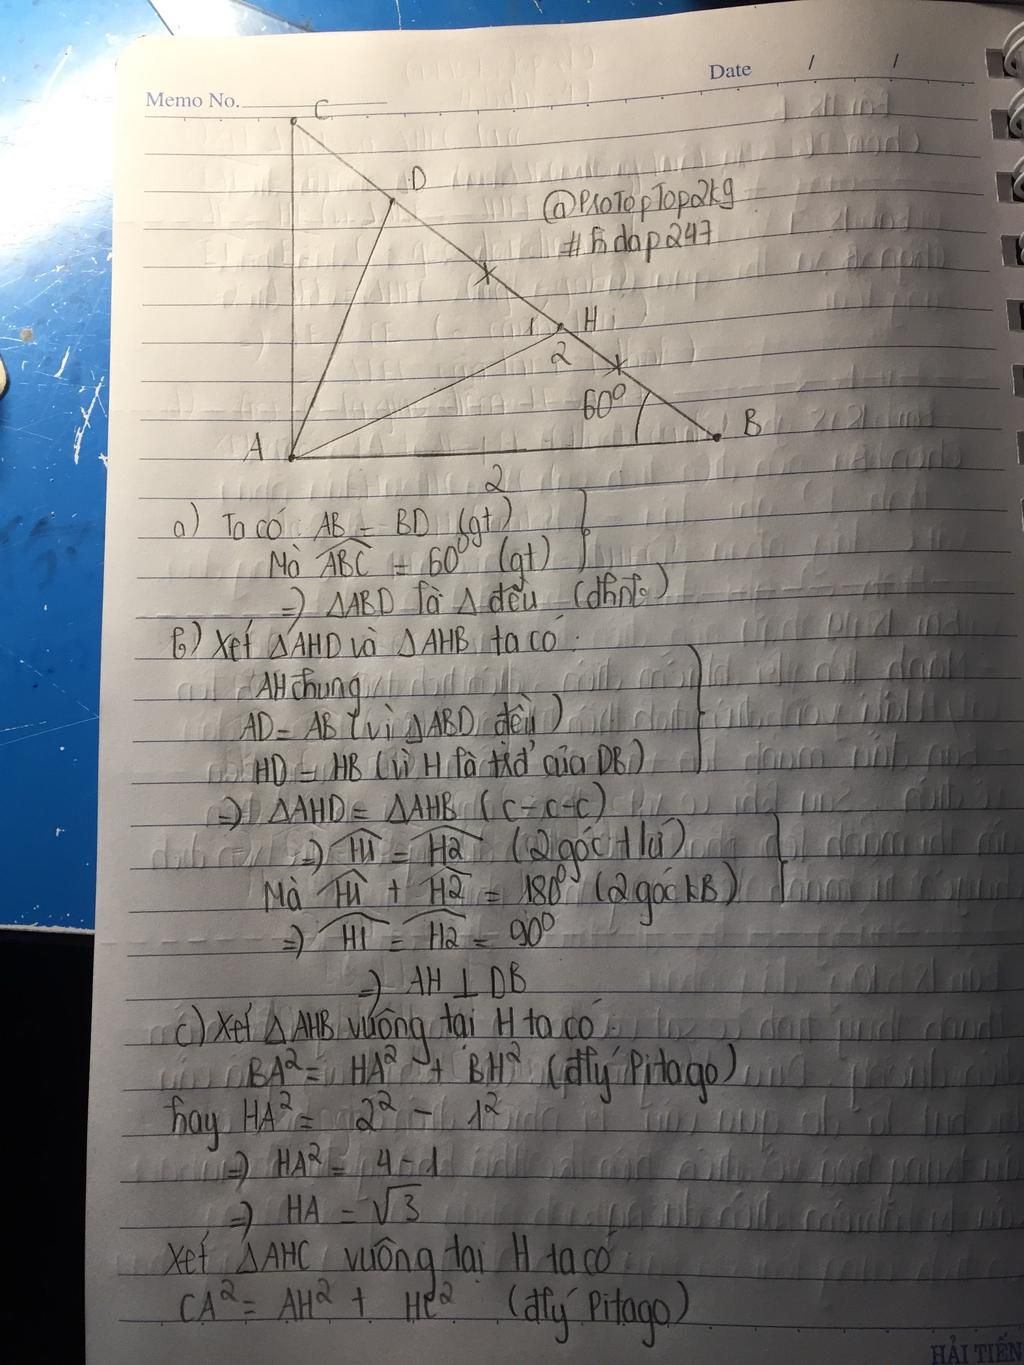 Memo No.
Date / /
C
D
@ProTopTop2kg
#hdap247
1 H
2
60⁰
A
B
2
a) Ta có: AB = BD (gt)
Mà ABC = 60⁰ (gt)
=) ΔABD là Δ đều (dhnb)
b) Xét ΔAHD và ΔAHB ta có:
AH chung
AD = AB (vì ΔABD đều)
HD = HB (vì H là tđ của DB)
=) ΔAHD = ΔAHB (c-c-c)
=) H1 = H2 (2 góc t/ư)
Mà H1 + H2 = 180⁰ (2 góc kB)
=) H1 = H2 = 90⁰
=) AH ⊥ DB
c) Xét ΔAHB vuông tại H ta có:
BA² = HA² + BH² (đlý Pitago)
hay HA² = 2² - 1²
=) HA² = 4-1
=) HA = √3
Xét ΔAHC vuông tại H ta có
CA² = AH² + HC² (đlý Pitago)
HẢI TIẾN